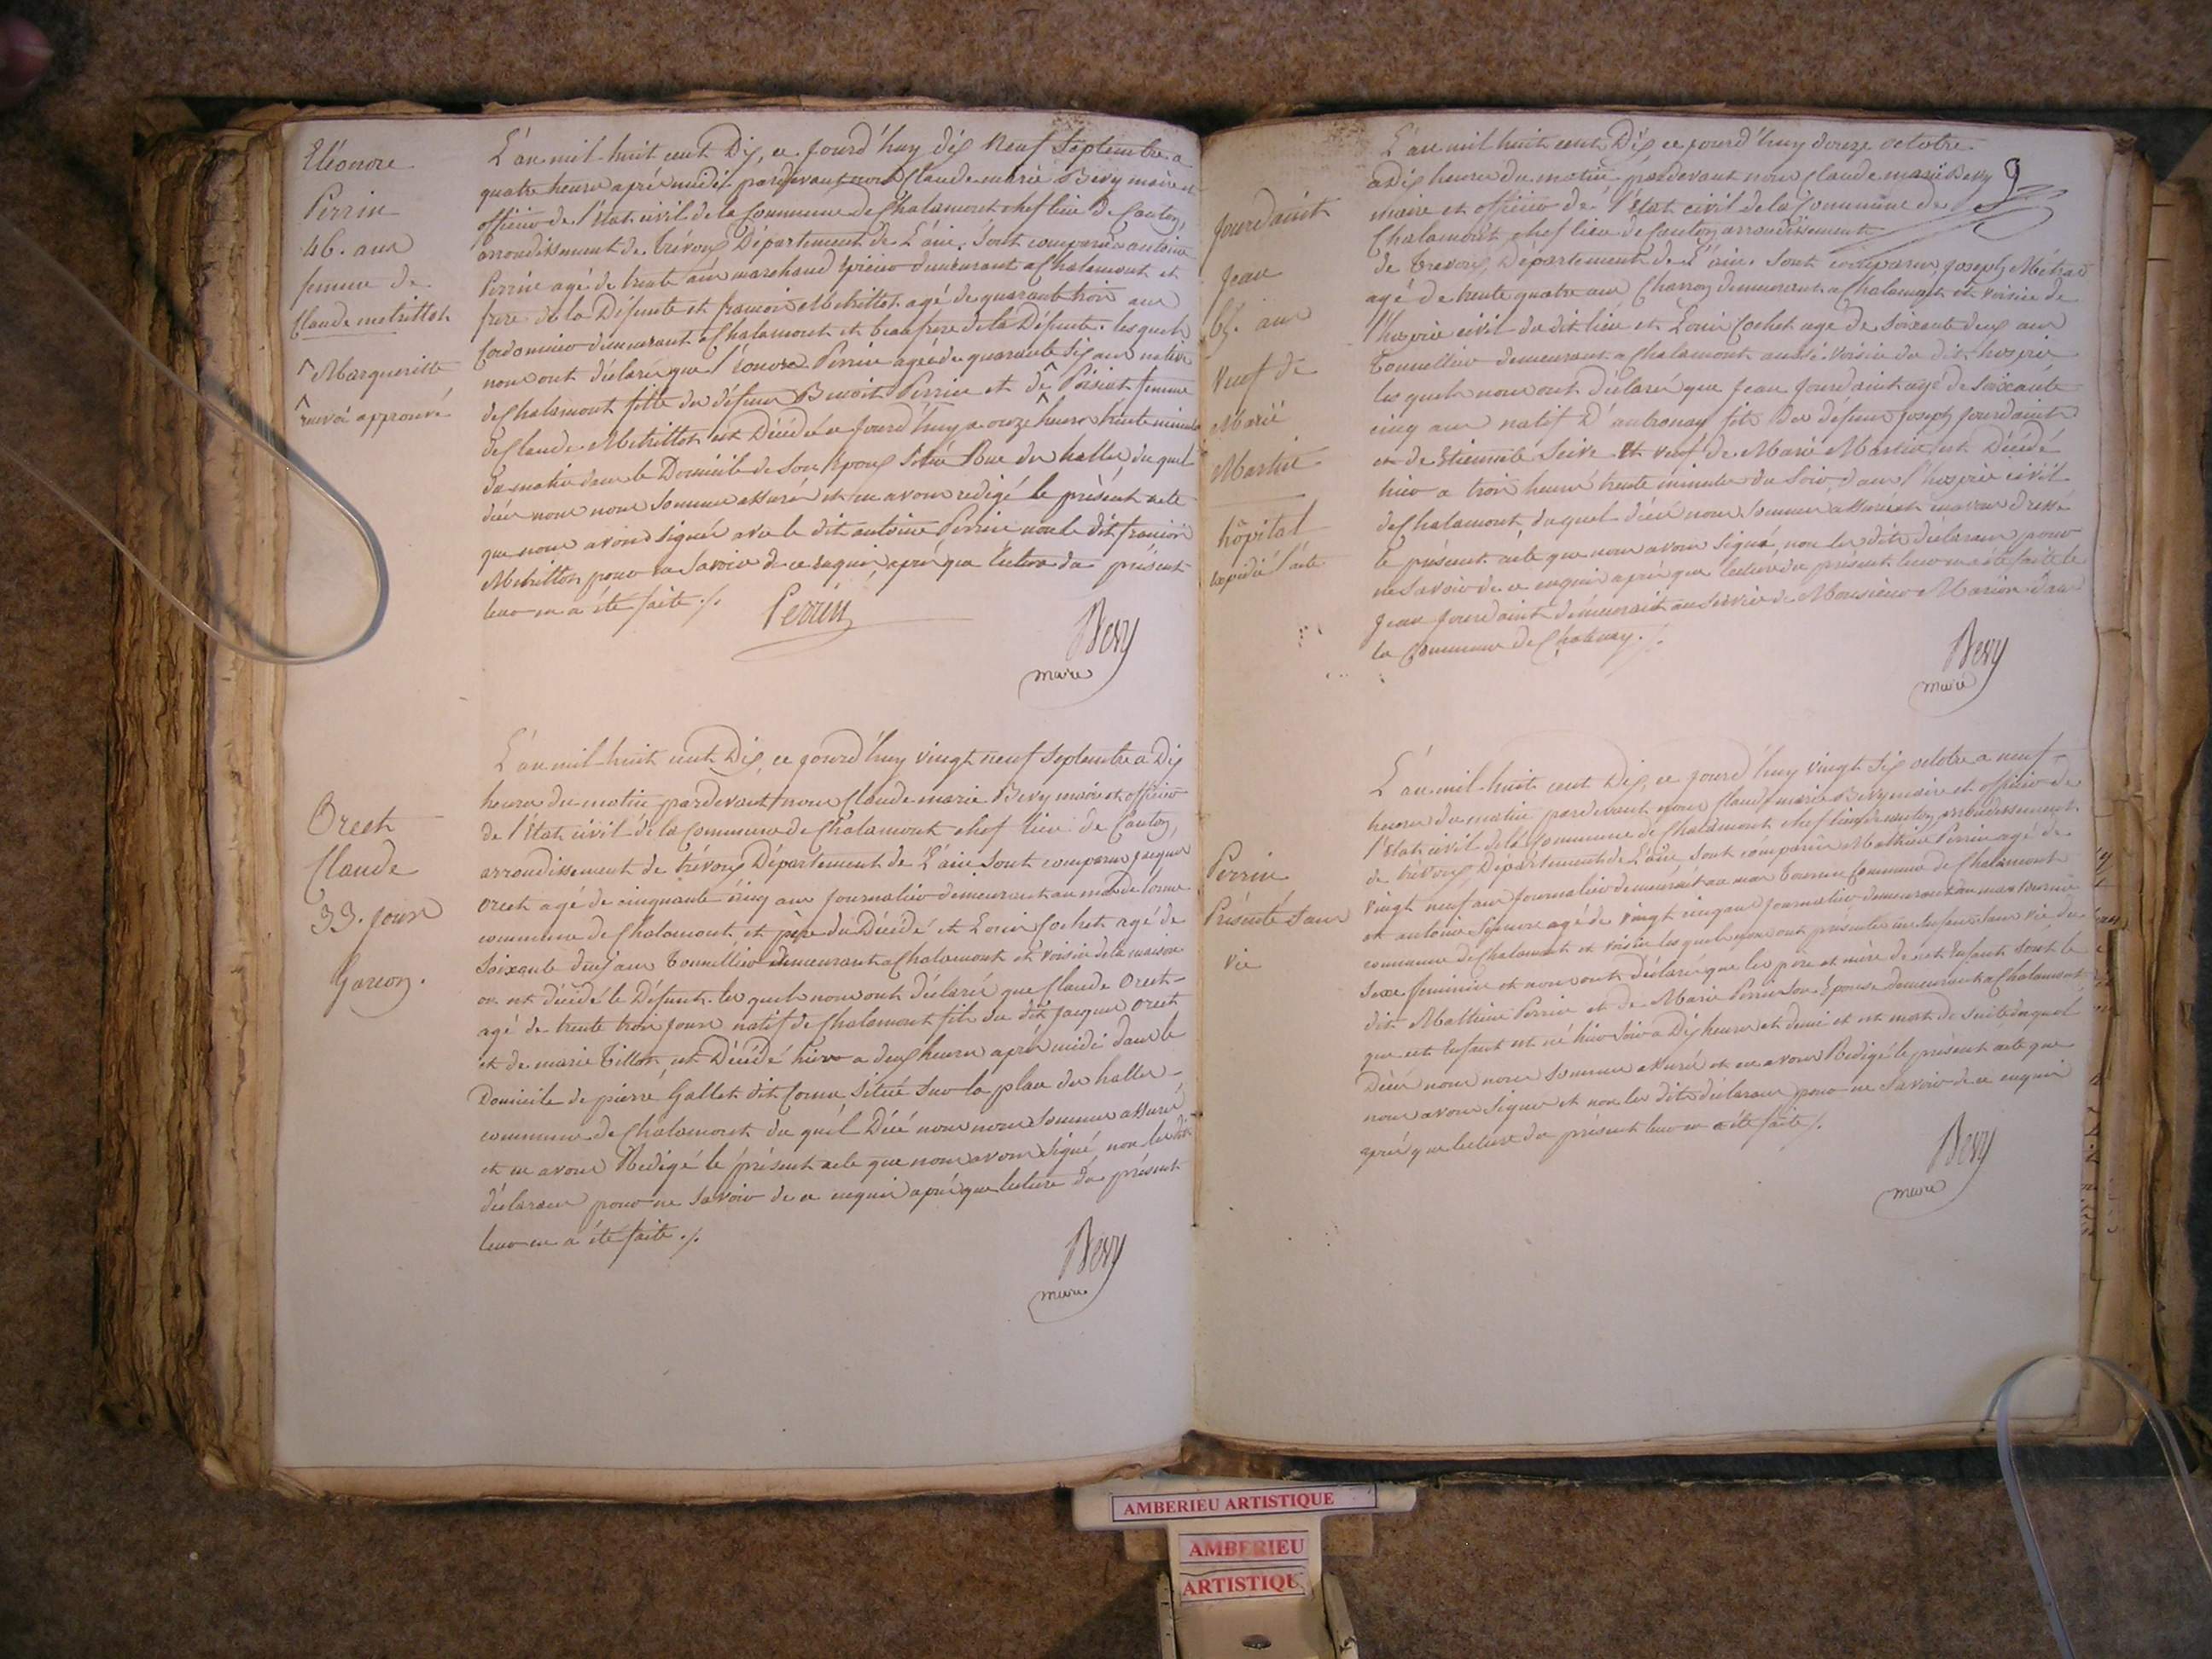 Eléonore
Perrin
46. ans
femme de
Claude metrillot
^ Margueritte
^ renvoi approuvé
L'an mil huit cent Dix, ce jourd'huy dix neuf Septembre a
quatre heures après midi pardevant nous Claude marie Bevy maire et
officier de l'état civil de la Commune de Chalamont chef lieu de Canton,
arrondissement de trévoux Département de L'ain. Sont comparus antoine
Perrin agé de trente ans marchand Epicier demeurant a Chalamont et
frere de la Défunte et francois Metrillot agé de quarante trois ans
Cordonnier demeurant a Chalamont et beaufrere de la Défunte. les quels
nous ont déclaré que l'éonore Perrin agée de quarante six ans native
de Chalamont fille du défunt Benoit Perrin et de ^ Poisiat femme
de Claude Metrillot est Décédée ce jourd'huy a onze heures trente minutes
du matin dans le Domicile de son Epoux Situé Rue des halles du quel
décés nous nous sommes assurés et en avons redigé le présent acte
que nous avons signé avec le dit antoine Perrin non le dit francois
Metrillot pour ne savoir de ce enquis, après que lecture du présent
leur en a été faite ./.
Perrin
Bevy
maire
Orcet
Claude
33. jours
Garcon.
L'an mil huit cent Dix, ce jourd'huy vingt neuf Septembre a Dix
heures du matin pardevant nous Claude marie Bevy maire et officier
de l'état civil de la Commune de Chalamont chef lieu de Canton,
arrondissement de trévoux Département de L'ain Sont comparus jacques
orcet agé de cinquante cinq ans journalier demeurant au mas de lorme
commune de Chalamont et père du Décédé et Louis Cochet agé de
Soixante deux ans Tonnellier demeurant a Chalamont et voisin de la maison
ou est décédé le Défunt. les quels nous ont déclaré que Claude orcet
agé de trente trois jours natif de Chalamont fils du dit jacques orcet
et de marie Tillon, est Décédé hier a deux heures après midi dans le
Domicile de pierre Gallet dit Cornu Situé sur la place des halles
commune de Chalamont du quel Décé nous nous sommes assuré
et en avons Redigé le présent acte que nous avons Signé, non les dits
déclarans pour ne Savoir de ce enquis après que lecture du présent
leur en a été faite ./.
Bevy
maire
9
jourdaint
Jean
65. ans
veuf de
Marie
Martin
hôpital
expédié l'acte
L'an mil huit cent Dix ce jourd'huy douze octobre
a Dix heures du matin pardevant nous Claude marie Bevy
maire et officier de l'état civil de la Commune de
Chalamont chef lieu de Canton arrondissement
de Trevoux, Département de L'ain. Sont comparus Joseph Métras
agé de trente quatre ans Charron demeurant a Chalamont et voisin de
l'hospice civil du dit lieu et Louis Cochet agé de Soixante deux ans
Tonnellier demeurant a Chalamont aussi voisin du dit hospice
les quels nous ont déclaré que Jean jourdaint agé de Soixante
cinq ans natif D' fils du défunt Joseph jourdaint
et de Etiennete Seive et veuf de Marie Martin est Décédé
hier a trois heures trente minutes du Soir, dans l'hospice civil
de Chalamont duquel décés nous sommes assurés et en avons dressé
le présent acte que nous avons Signé, non les dits déclarans pour
ne Savoir de ce enquis après que lecture du présent leur en a été faite le
Jean jourdaint demeurait au service de Monsieur Marion dans
la Commune de Chatenay ./.
Bevy
maire
Perrin
Présenté sans
vie
L'an mil huit cent Dix, ce jourd'huy vingt six octobre a neuf
heures du matin pardevant nous Claude marie Bevy maire et officier de
l'état civil de la Commune de Chalamont chef lieu de canton, arrondissement
de trévoux, Département de L'ain sont comparus Mathieu Perrin agé de
vingt neuf ans journalier demeurant au mas Commune de Chalamont
et antoine agé de vingt cinq ans journalier demeurant au mas
commune de Chalamont et voisin les quels nous ont présenté un Enfant sans vie du
Sexe féminin et nous ont déclaré que les père et mère de cet Enfant sont le
dit Mathieu Perrin et de Marie Perrin Son Epouse demeurant a Chalamont
que cet Enfant est né hier Soir a Dix heures et demi et est mort de suite duquel
Décés nous nous sommes assuré et en avons Redigé le présent acte que
nous avons Signé et non les dits déclarans pour ne Savoir de ce enquis
après que lecture du présent leur en a été faite ./.
Bevy
maire
AMBERIEU ARTISTIQUE
AMBERIEU
ARTISTIQUE